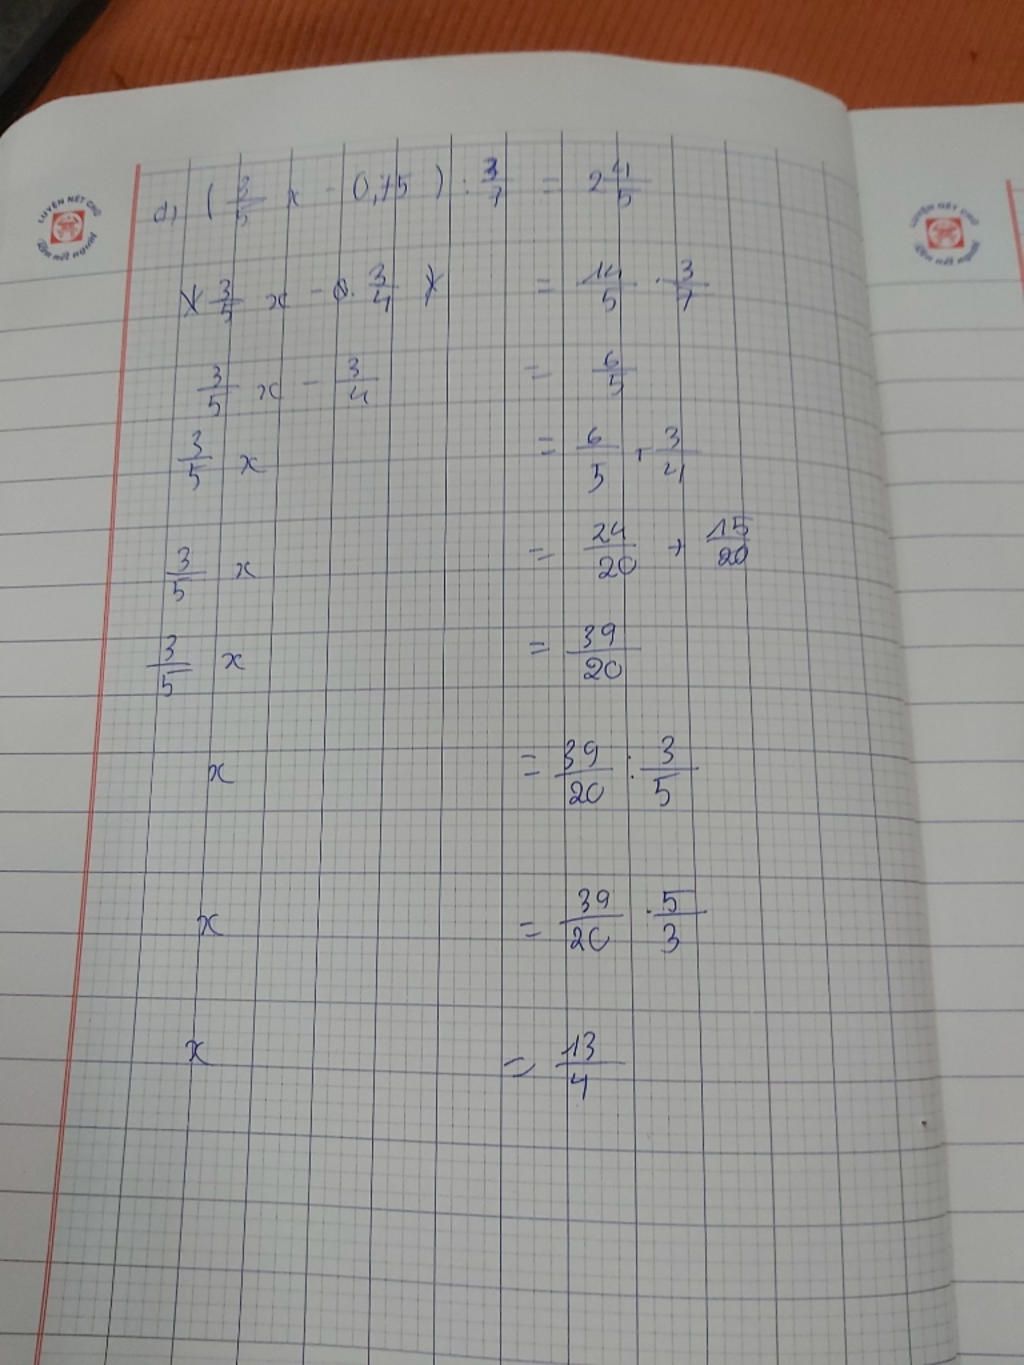 LUYỆN NÉT CHỮ
Rèn nết người
LUYỆN NẾT CHỮ
Rèn nết người
d) ( 3/5 x - 0,75 ) : 3/7 = 2 4/5
3/5 x - 3/4 = 14/5 . 3/7
3/5 x - 3/4 = 6/5
3/5 x = 6/5 + 3/4
3/5 x = 24/20 + 15/20
3/5 x = 39/20
x = 39/20 : 3/5
x = 39/20 . 5/3
x = 13/4